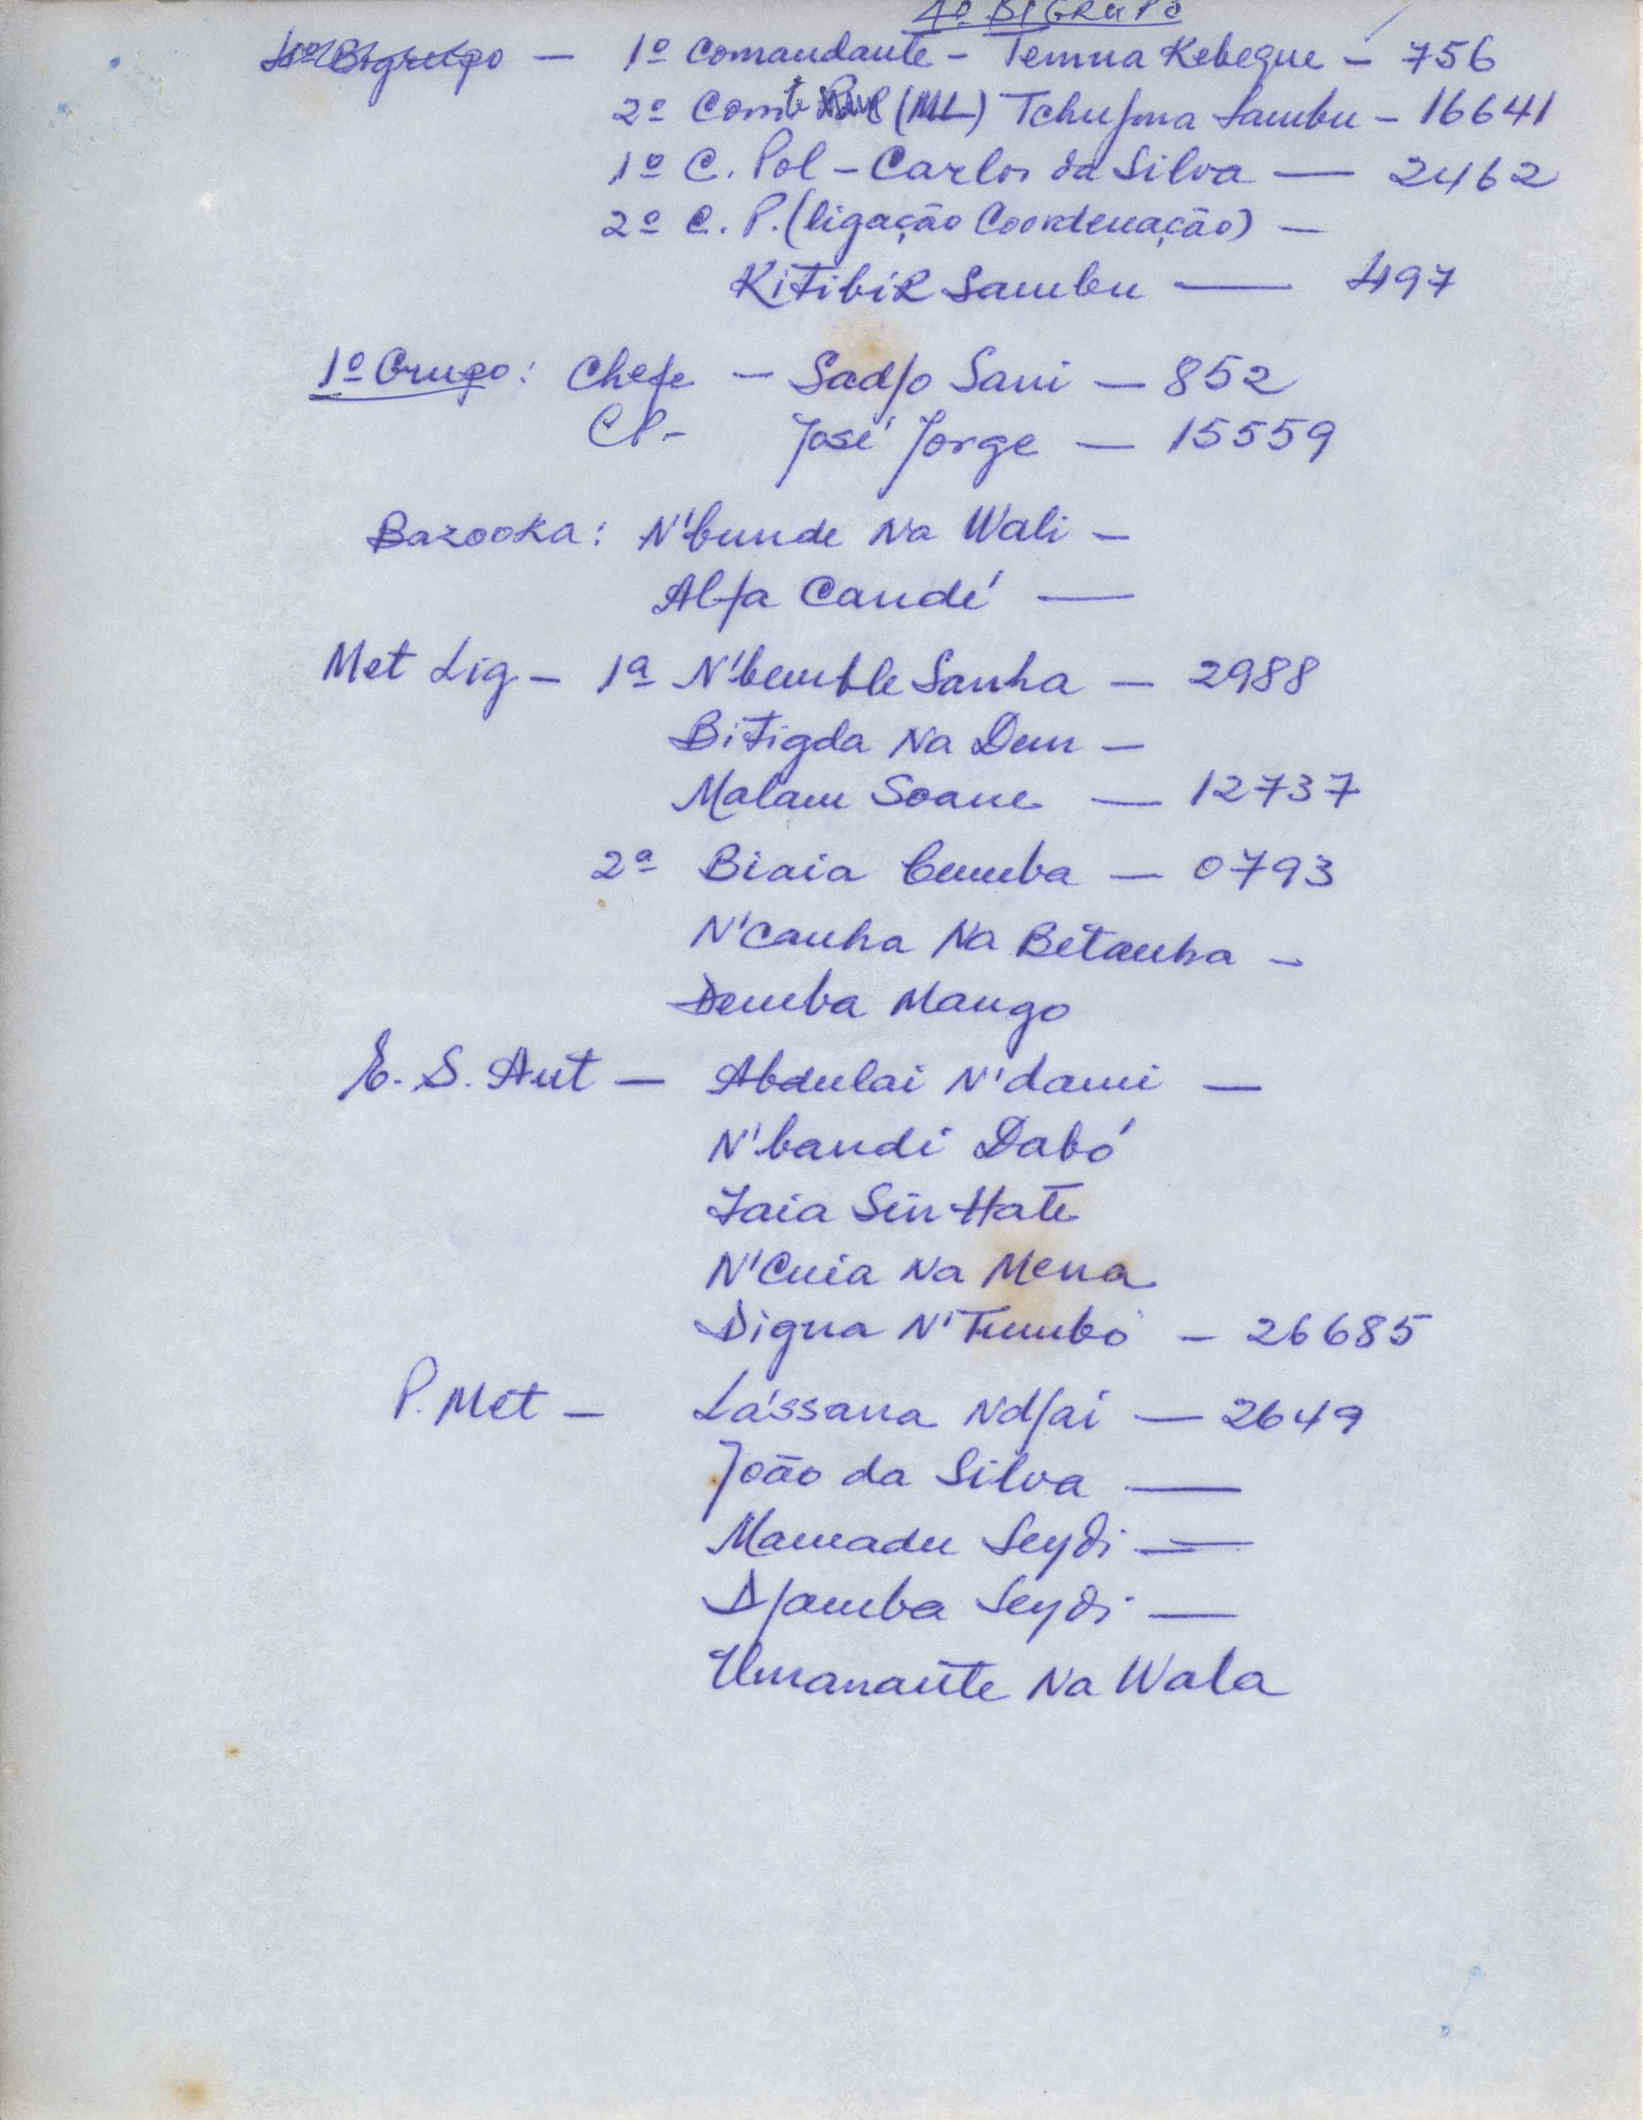 4º BIGRUPO
4º Bigrupo — 1º Comandante - Temna Kebeque - 756
2º Comte (ML) Tchujma Sambu - 16641
1º C. Pol - Carlos da Silva — 2462
2º C. P. (ligação Coordenação) —
Kitibil Sambu — 497
1º Grupo: Chefe — Sadjo Sani — 852
CP- José Jorge — 15559
Bazooka: N'bunde Na Wali -
Alfa Candé —
Met Lig - 1ª N'bemble Sanha — 2988
Bitigda Na Dum —
Malam Soane — 12737
2ª Biaia Cumba — 0793
N'canha Na Betanha -
Demba Mango
E. S. Aut — Abdulai N'dami —
N'bandi Dabó
Iaia Sin Hate
N'Cuia Na Mena
Digna N'Tumbó — 26685
P. Met — Lássana Ndjai — 2649
João da Silva —
Mamadu Seydi —
Djamba Seydi —
Umanante Na Wala